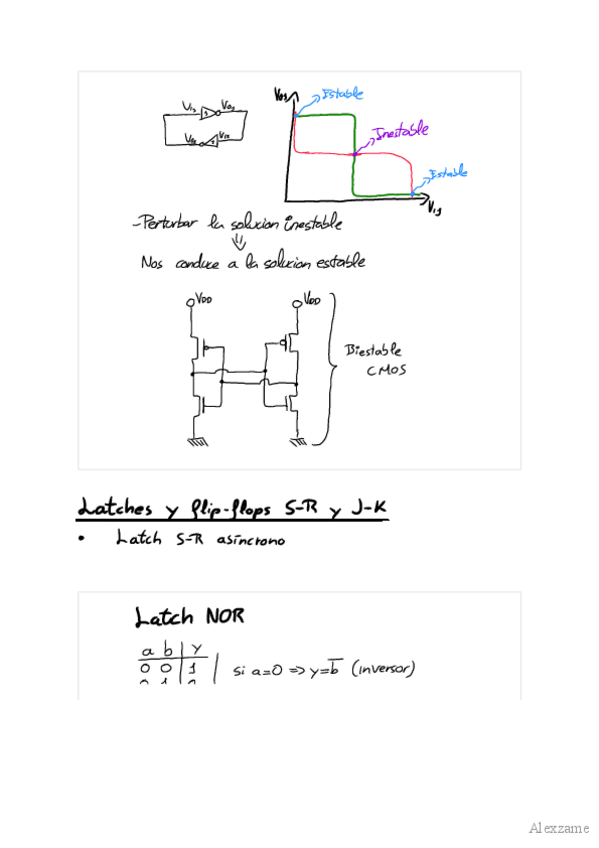 Vo1
Estable
Vi1 Vo1
Inestable
Vo2 Vi2
Estable
Vi1
-Perturbar la solucion inestable
⇓
Nos conduce a la solucion estable
VDD VDD
Biestable
CMOS
Latches y flip-flops S-R y J-K
• Latch S-R asíncrono
Latch NOR
a b y
0 0 1 si a=0 => y=b̅ (inversor)
Alexzame